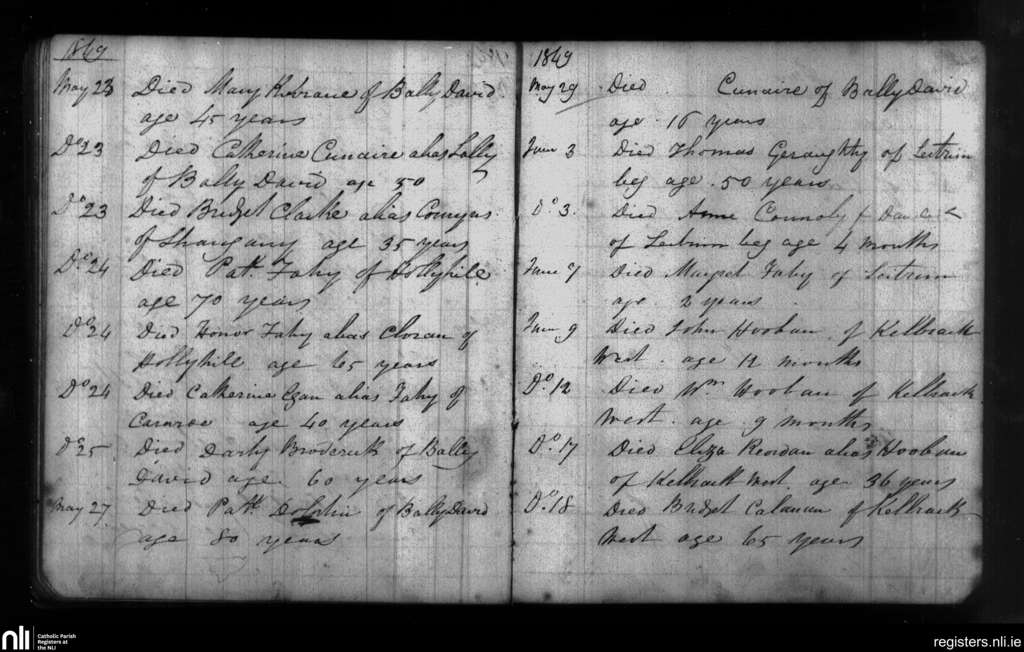 1849
May 23 Died Mary Kibrane of Bally David
age 45 years
Do 23 Died Catherine Cunaire alias Lally
of Bally David age 50
Do 23 Died Bridget Clarke alias Comyns
of age 35 years
Do 24 Died Patt. Fahy of Hollyhill
age 70 years
Do 24 Died Honor Fahy alias Cloran of
Hollyhill age 65 years
Do 24 Died Catherine Egan alias Fahy of
age 40 years
Do 25 Died Darby Broderick of Bally
David age 60 years
May 27 Died Patt. Dolphin of Bally David
age 80 years
1849
May 29 Died Cunaire of Bally David
age 16 years
June 3 Died Thomas Geraughty of Leitrim
beg age 50 years
Do. 3. Died Anne Connoly
of Leitrim beg age 4 months
June 7 Died Margret Fahy of Leitrim
age 2 years
June 9 Died John Hooban of Kelbrack
West. age 12 months
Do. 12 Died Wm Hooban of Kelbrack
West. age 9 months
Do. 17 Died Eliza Reordan alias Hooban
of Kelbrack West. age 36 years
Do. 18 Died Bridget Calanan of Kelbrack
West age 65 years
nli Catholic Parish
Registers at
the NLI
registers.nli.ie